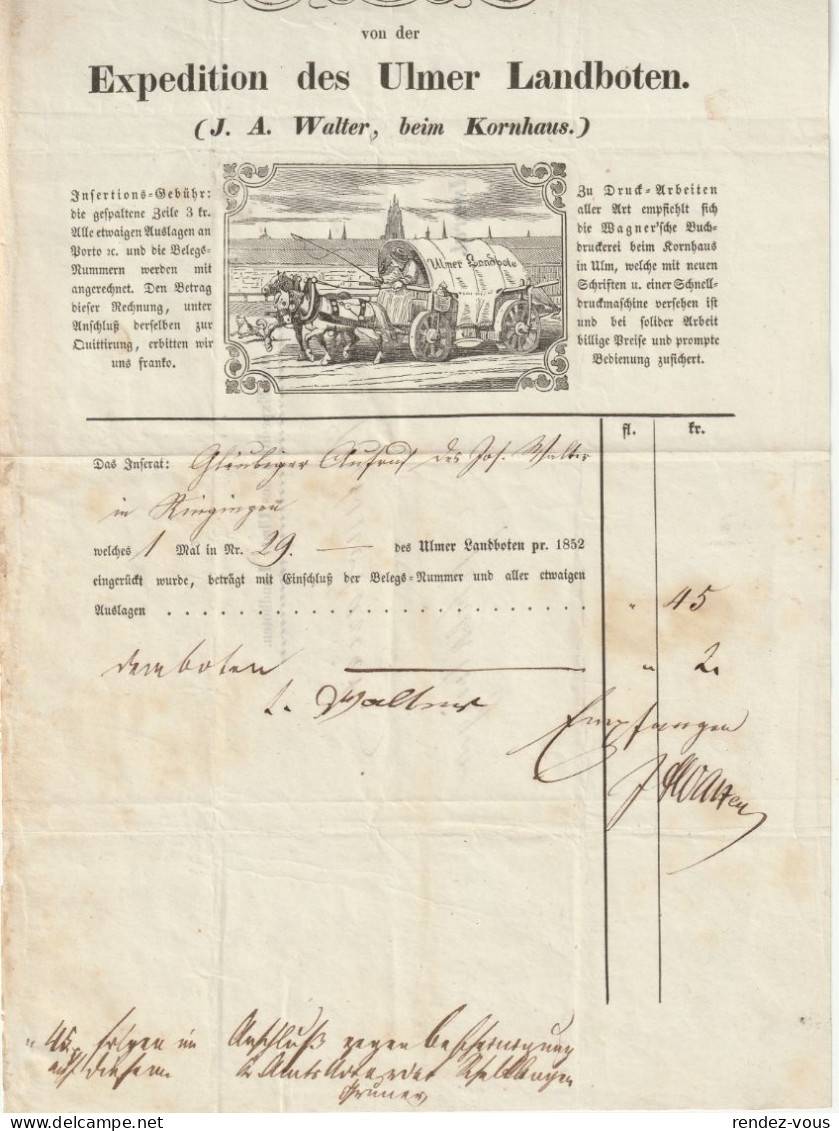 von der
Expedition des Ulmer Landboten.
(J. A. Walter, beim Kornhaus.)
Insertions-Gebühr:
die gespaltene Zeile 3 kr.
Alle etwaigen Auslagen an
Porto ꝛc. und die Belegs-
Nummern werden mit
angerechnet. Den Betrag
dieser Rechnung, unter
Anschluß derselben zur
Quittirung, erbitten wir
uns franko.
Ulmer Landbote
Zu Druck-Arbeiten
aller Art empfiehlt sich
die Wagner'sche Buch-
druckerei beim Kornhaus
in Ulm, welche mit neuen
Schriften u. einer Schnell-
druckmaschine versehen ist
und bei solider Arbeit
billige Preise und prompte
Bedienung zusichert.
fl. kr.
Das Inserat: Gläubiger Aufruf des Jos. Walter
in Ringingen
welches 1 Mal in Nr. 29. — des Ulmer Landboten pr. 1852
eingerückt wurde, beträgt mit Einschluß der Belegs-Nummer und aller etwaigen
Auslagen . . . . . . . . . . . . . . . . . " 45
dem boten — " 2.
Empfangen
45 folgen im Anschluß gegen Bescheinigung
auf diesem